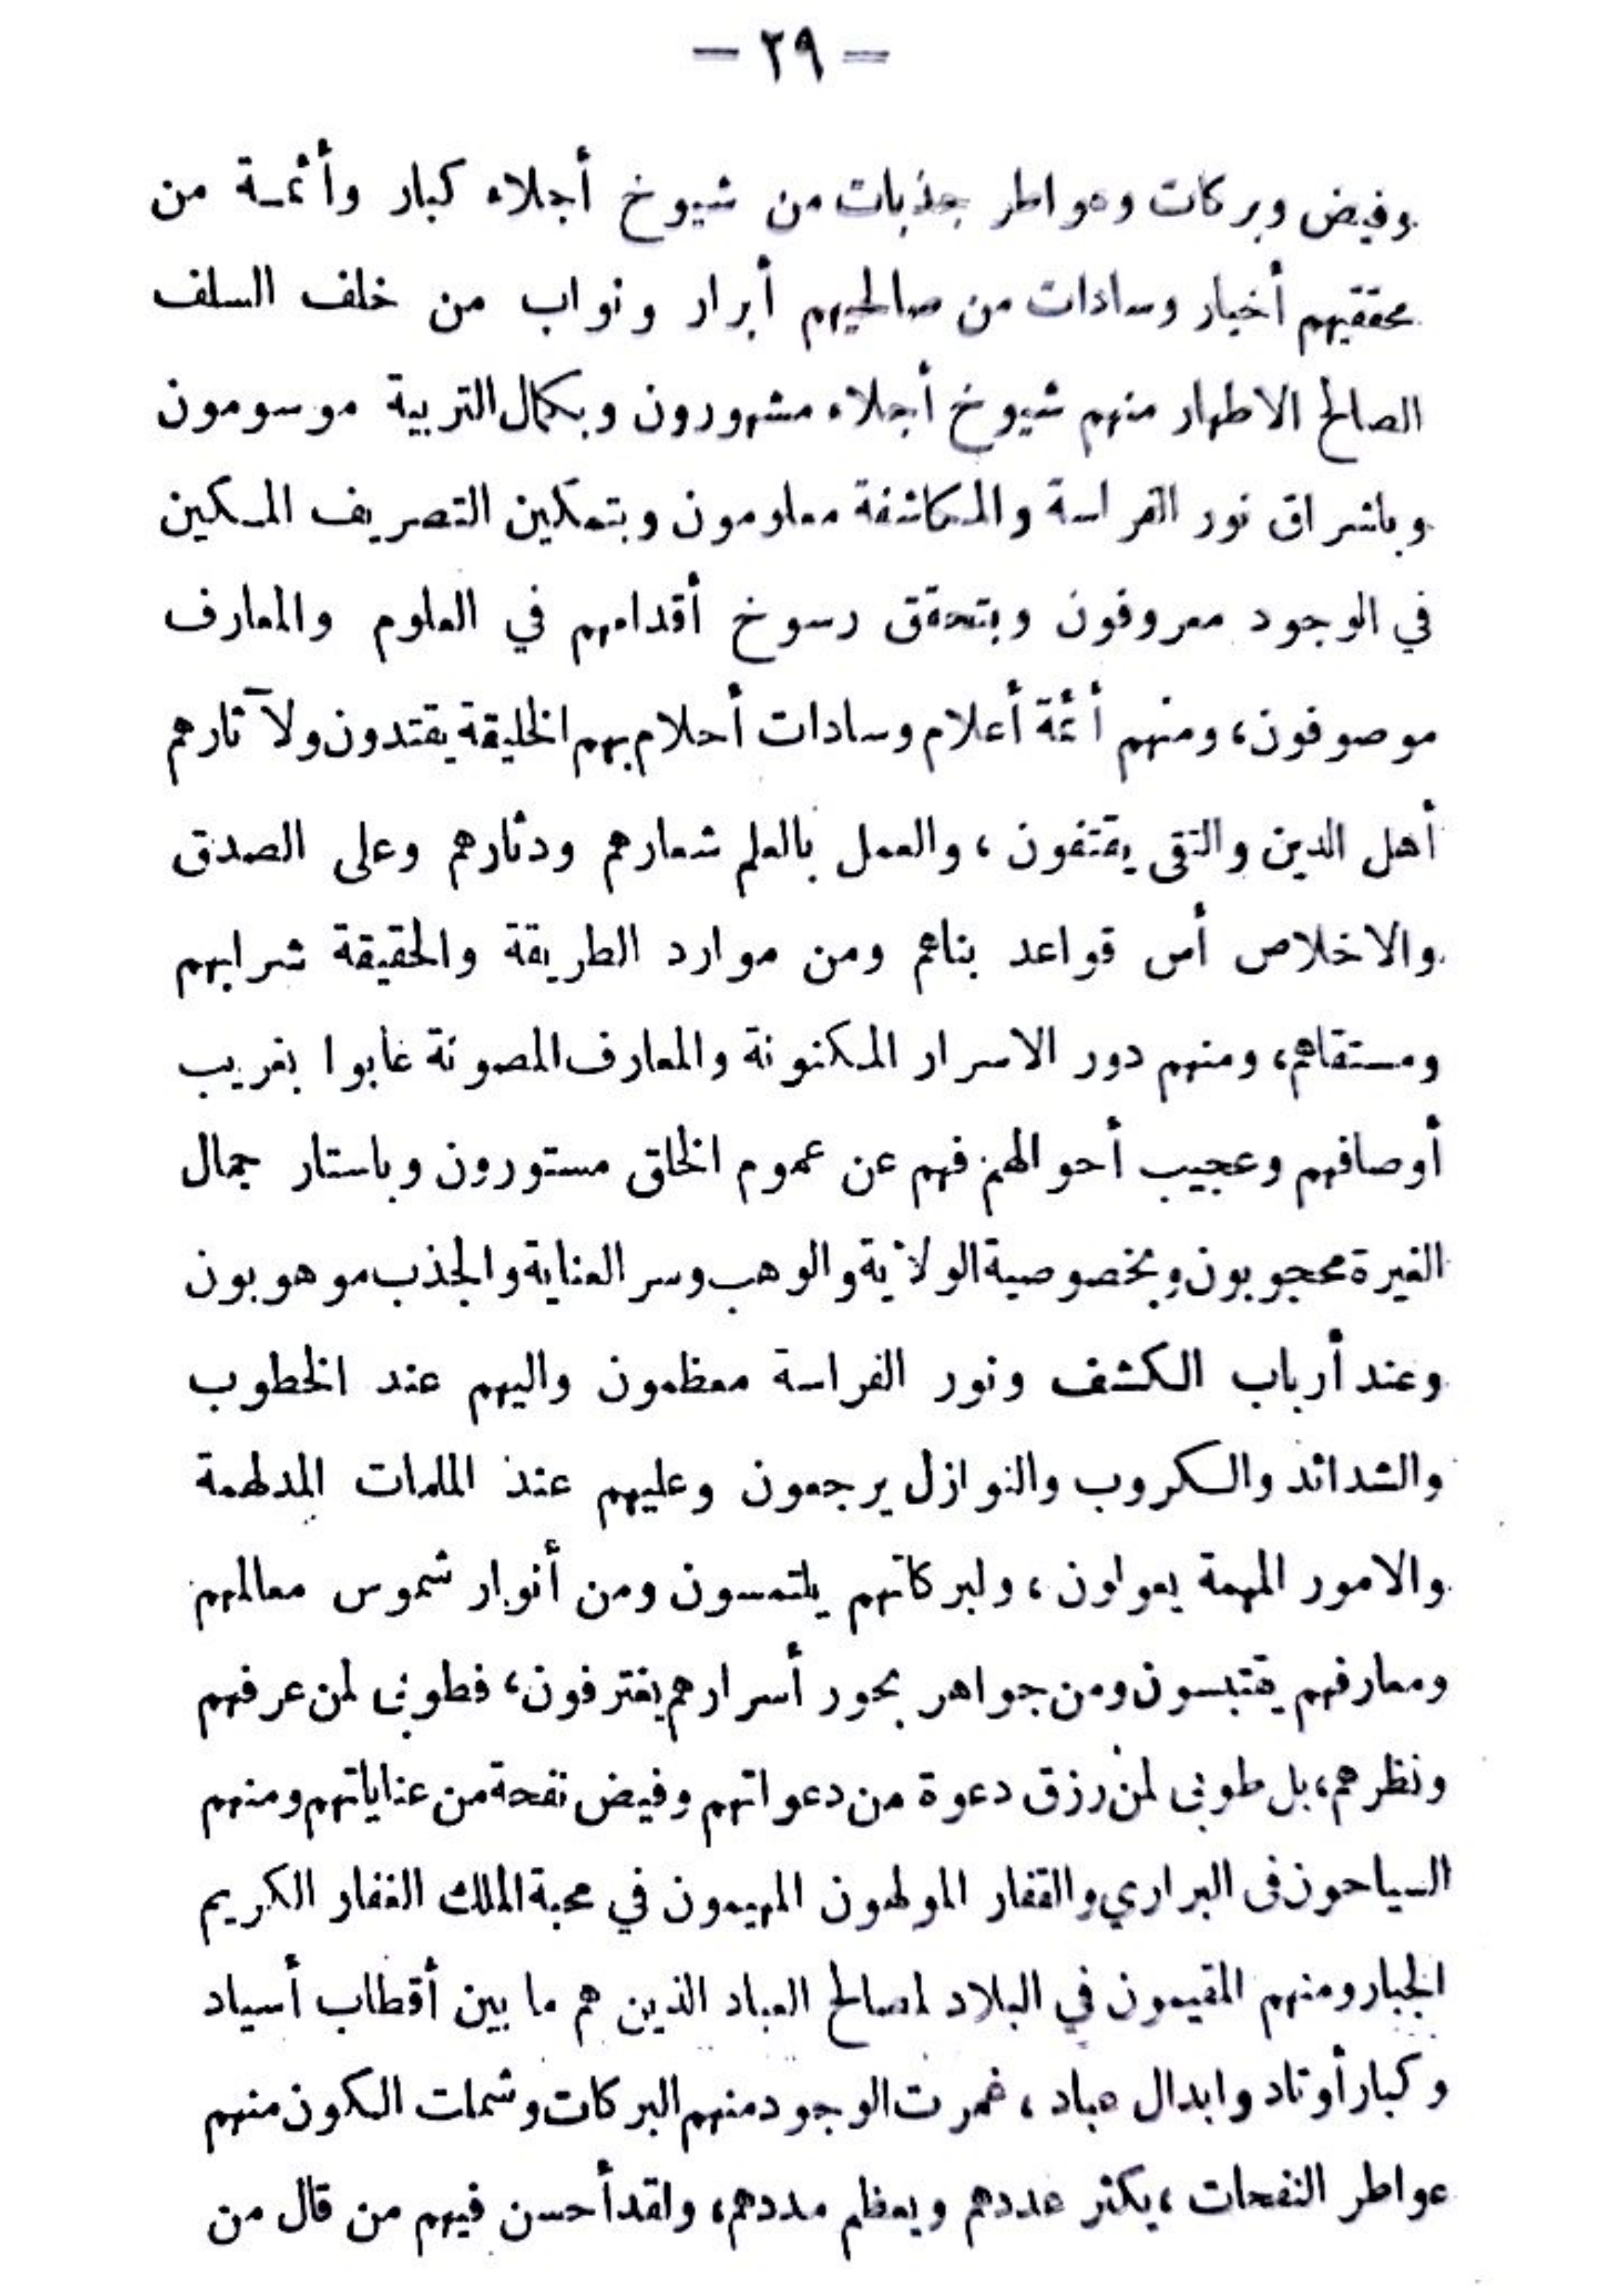 — ٢٩ —
وفيض وبركات وعواطر جذبات من شيوخ أجلاء كبار وأئمة من
محققيهم أخيار وسادات من صالحيهم أبرار ونواب من خلف السلف
الصالح الاطهار منهم شيوخ أجلاء مشهورون وبكمال التربية موسومون
وباشراق نور الفراسة والمكاشفة معلومون وبتمكين التصريف المكين
في الوجود معروفون وبتحقق رسوخ أقدامهم في العلوم والمعارف
موصوفون، ومنهم أئمة أعلام وسادات أحلام بهم الخليقة يقتدون ولآثارهم
أهل الدين والتقى يقتفون، والعمل بالعلم شعارهم ودثارهم وعلى الصدق
والاخلاص أس قواعد بناهم ومن موارد الطريقة والحقيقة شرابهم
ومستقاهم، ومنهم دور الاسرار المكنونة والمعارف المصونة غابوا بغريب
أوصافهم وعجيب أحوالهم فهم عن عموم الخلق مستورون وباستار جمال
الغيرة محجوبون وبخصوصية الولاية والوهب وسر العناية والجذب موهوبون
وعند أرباب الكشف ونور الفراسة معظمون واليهم عند الخطوب
والشدائد والكروب والنوازل يرجعون وعليهم عند الملمات المدلهمة
والامور المهمة يعولون، ولبركاتهم يلتمسون ومن أنوار شموس معالمهم
ومعارفهم يقتبسون ومن جواهر بحور أسرارهم يغترفون، فطوبى لمن عرفهم
ونظرهم، بل طوبى لمن رزق دعوة من دعواتهم وفيض نفحة من عناياتهم ومنهم
السياحون فى البراري والقفار المولهون المهيمون في محبة الملك الغفار الكريم
الجبار ومنهم المقيمون في البلاد لمصالح العباد الذين هم ما بين أقطاب أسياد
وكبار أوتاد وابدال عباد، غمرت الوجود منهم البركات وشملت الكون منهم
عواطر النفحات، يكثر عددهم ويعظم مددهم، ولقد أحسن فيهم من قال من